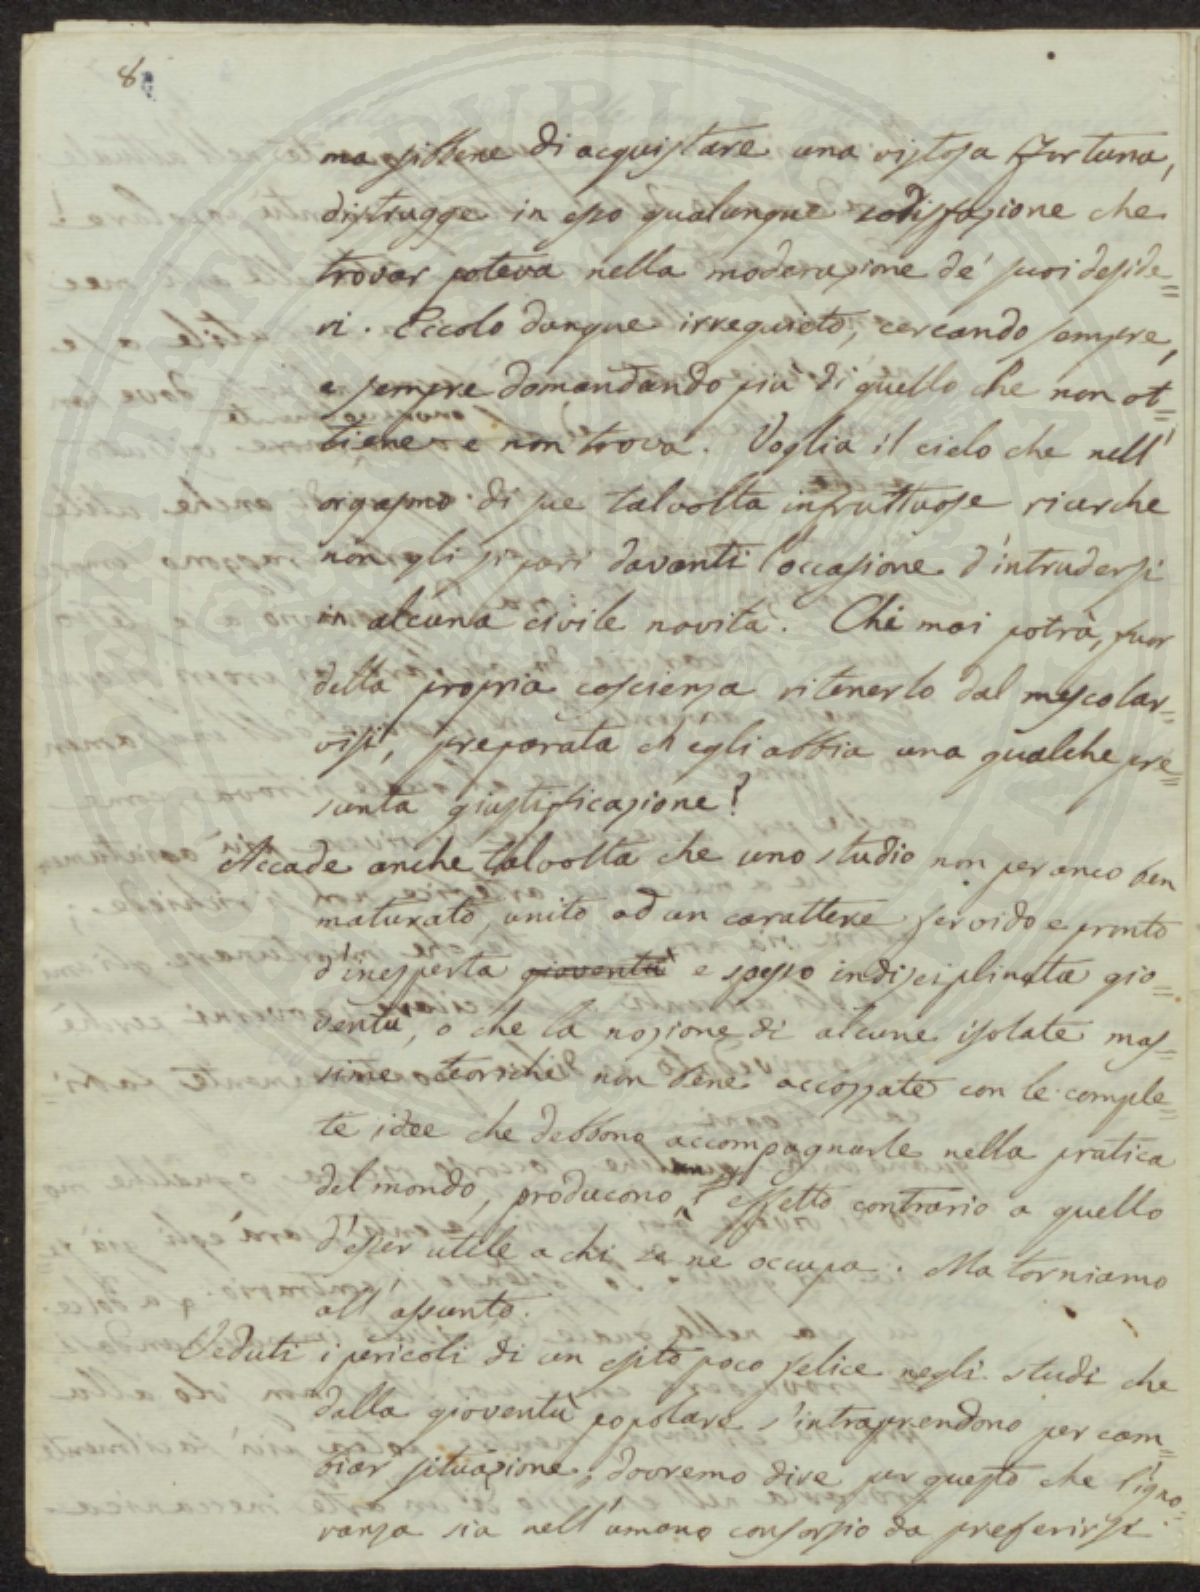 8
ma sibbene di acquistare una vistosa fortuna,
distrugge in esso qualunque sodisfazione che
trovar poteva nella moderazione de' suoi deside=
ri. Eccolo dunque irrequieto, cercando sempre,
e sempre domandando più di quello che non ot=
tiene e non trova. Voglia il cielo che nell'
orgasmo di sue talvolta infruttuose ricerche
non gli si pari davanti l'occasione d'intrudersi
in alcuna civile novità. Chi mai potrà, fuor
della propria coscienza ritenerlo dal mescolar=
visi, preparata ch'egli abbia una qualche pre=
sunta giustificazione?
Accade anche talvolta che uno studio non per anco ben
maturato, unito ad un carattere fervido e pronto
d'inesperta gioventù e spesso indisciplinata gio=
ventù, o che la nozione di alcune isolate mas=
sime teoriche non bene accoppate con le comple=
te idee che debbono accompagnarle nella pratica
del mondo, producono un effetto contrario a quello
d'esser utile a chi se ne occupa. Ma torniamo
all'assunto.
Veduti i pericoli di un esito poco felice negli studi che
dalla gioventù popolare s'intraprendono per cam=
biar situazione, dovremo dire per questo che l'igno=
ranza sia nell'umano consorzio da preferirsi